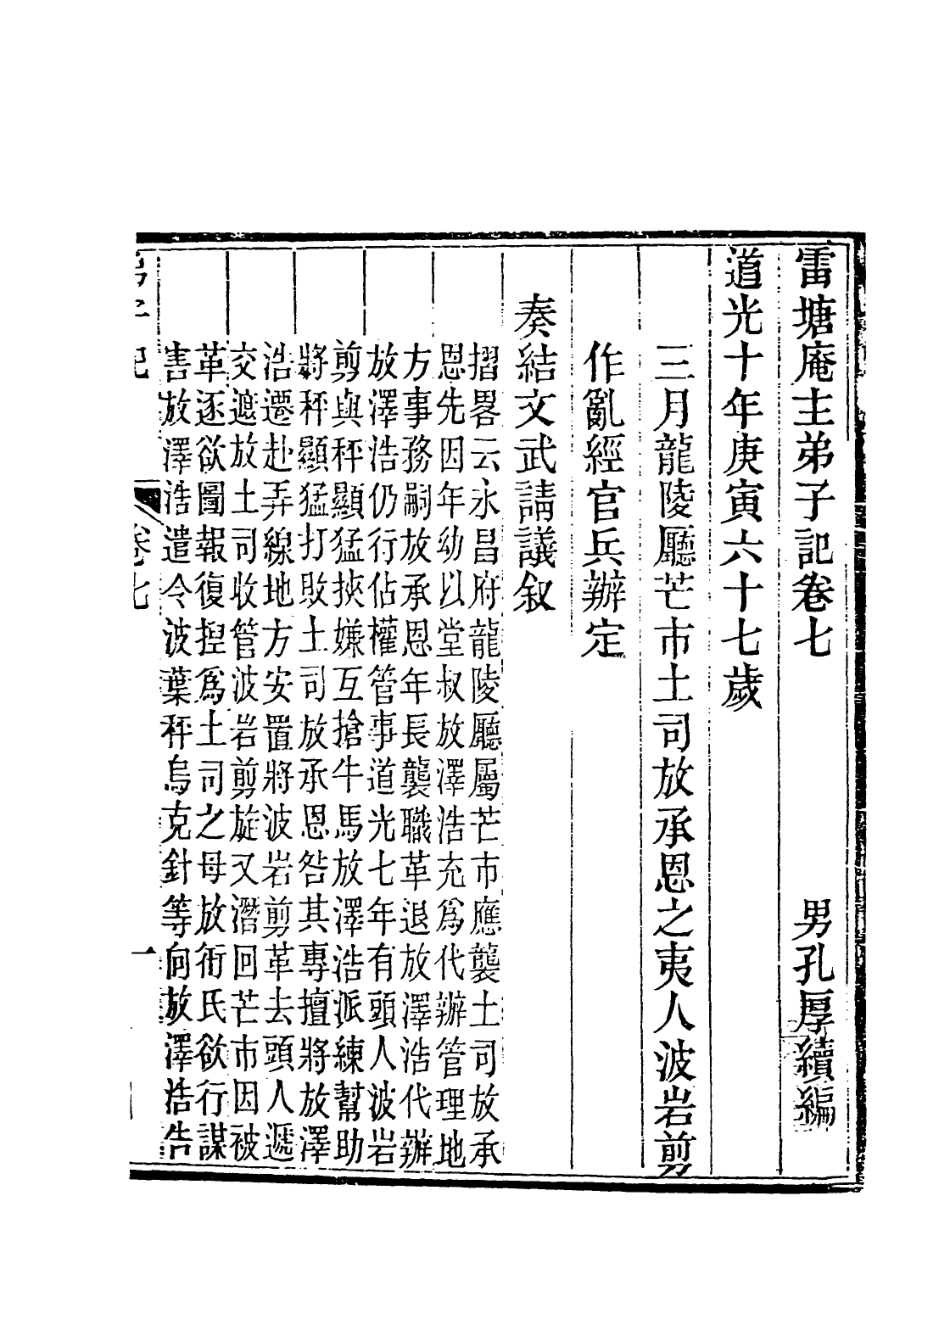 雷塘庵主弟子記卷七　男孔厚續編
道光十年庚寅六十七歲
三月龍陵廳芒市土司放承恩之夷人波岩剪
作亂經官兵辦定
奏結文武請議叙
摺畧云永昌府龍陵廳屬芒市應襲土司放承
恩先因年幼以堂叔放澤浩充爲代辦管理地
方事務嗣放承恩年長襲職革退放澤浩代辦
放澤浩仍行佔權管事道光七年有頭人波岩
剪與秤顯猛挾嫌互搶牛馬放澤浩派練幫助
將秤顯猛打敗土司放承恩咎其專擅將放澤
浩遷赴弄線地方安置將波岩剪革去頭人遞
交遮放土司收管波岩剪旋又潛回芒市因被
革逐欲圖報復捏爲土司之母放衎氏欲行謀
害放澤浩遣令波葉秤烏克針等向放澤浩告
弟子記　卷七　一